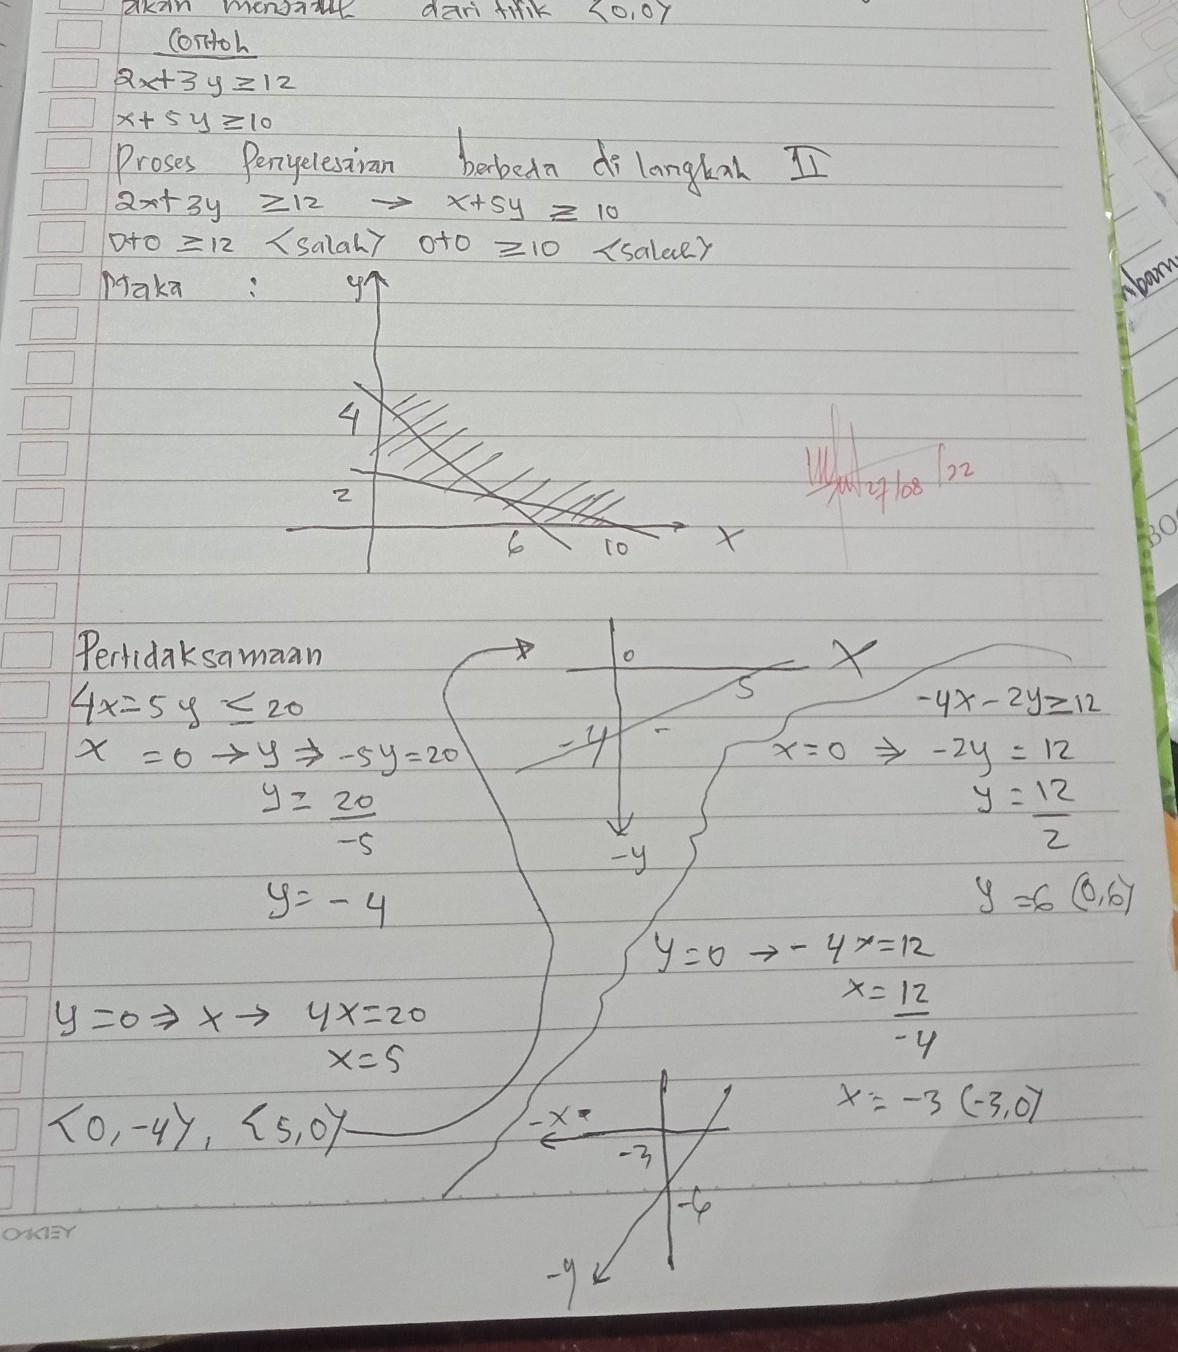 akan menjauh dari titik (0,0)
Contoh
2x+3y ≥ 12
x+5y ≥ 10
Proses Penyelesaian berbeda di langkah II
2x+3y ≥ 12 → x+5y ≥ 10
0+0 ≥ 12 <salah> 0+0 ≥ 10 <salah>
Maka :
y
4
2
6 10 x
27/08/22
Pertidaksamaan
4x=5y ≤ 20
x = 0 → y ⇒ -5y=20
y = 20
-5
y = -4
y=0 ⇒ x → 4x=20
x=5
<0,-4>, <5,0>
0
X
5
-4
-y
-4x-2y ≥ 12
x=0 ⇒ -2y = 12
y = 12
2
y = 6 (0,6)
y=0 → -4x=12
x = 12
-4
x = -3 (-3,0)
-x
-3
-6
-y
OKEY